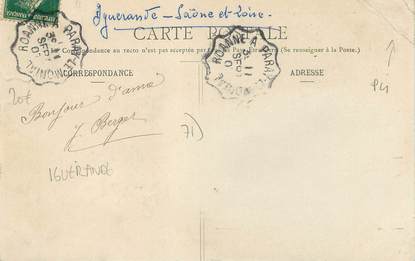 Iguerande - Saône et Loire.
CARTE POSTALE
Correspondance au recto n'est pas acceptée par (Se renseigner à la Poste.)
CORRESPONDANCE
ADRESSE
ROANNE A PARAY-LE-MONIAL
ROANNE A PARAY-LE-MONIAL
Bonjour d'ami
J. Berger
71)
IGUÉRANDE